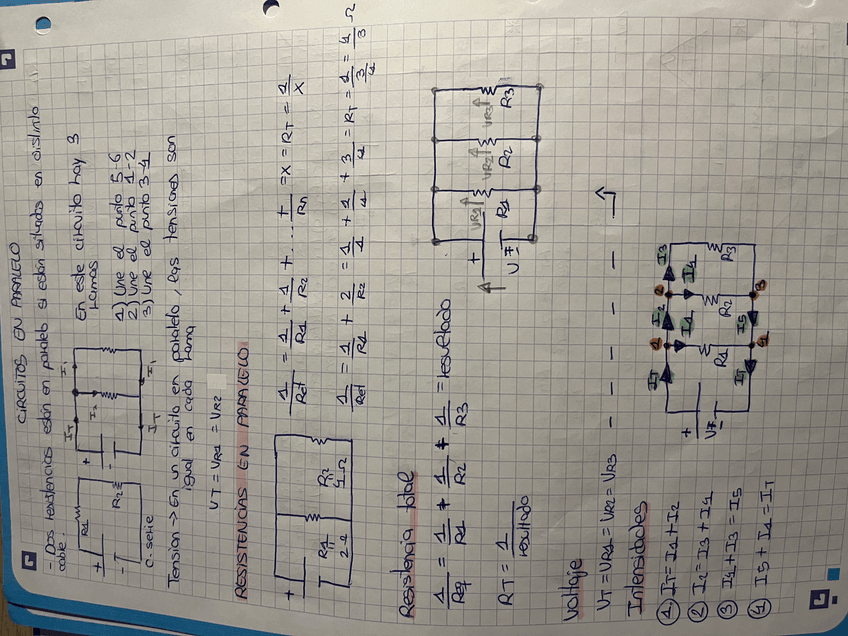 CIRCUITOS EN PARALELO
- Dos resistencias están en paralelo si están situados en distinto
cable.
R1
+
-
R2
C. serie
+
-
IT
I1
I2
I1
IT
En este circuito hay 3
ramas
1) Une el punto 5-6
2) Une el punto 1-2
3) Une el punto 3-4
Tension -> En un circuito en paralelo, las tensiones son
igual en cada rama
VT = VR1 = VR2
RESISTENCIAS EN PARALELO
+
R1
=
2Ω
R2
=
4Ω
1/Req = 1/R1 + 1/R2 + ... + 1/Rn = X = RT = 1/X
1/Req = 1/R1 + 2/R2 = 1/4 + 1/4 + 3/4 = RT = 1/(3/4) = 4/3 Ω
Resistencia total
1/Req = 1/R1 + 1/R2 + 1/R3 = resultado
RT = 1/resultado
+
V
-
VR1
R1
VR2
R2
VR3
R3
Voltaje
VT = VR1 = VR2 = VR3
Intensidades
① IT = I1 + I2
② I2 = I3 + I4
③ I4 + I3 = I5
④ I5 + I1 = IT
+
V
-
IT
1
I2
2
I3
I1
I4
R1
R2
R3
IT
4
I5
3